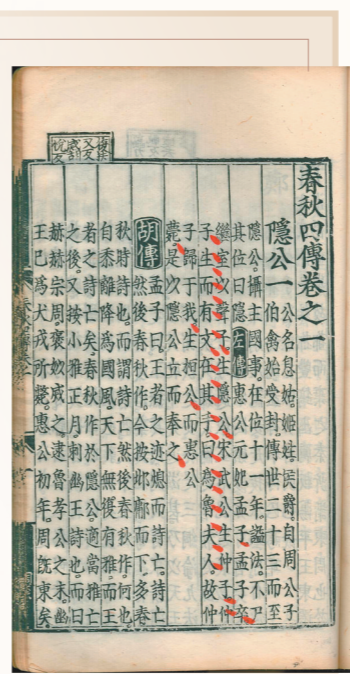 春秋四傳卷之一
隱公一
公名息姑。姬姓侯爵。自周公子
伯禽始受封。傳世二十三而至
隱公。攝主國事。在位十一年。諡法。不尸
其位曰隱。左傳 惠公元妃孟子。孟子卒
繼室以聲子。生隱公。宋武公生仲子。仲
子生而有文在其手曰為魯夫人。故仲
子歸于我。生桓公而惠公
薨。是以隱公立而奉之。
胡傳 孟子曰。王者之迹熄而詩亡。詩亡
然後春秋作。今按邶鄘而下。多春
秋時詩也。而謂詩亡然後春秋作。何也。
自黍離降為國風。天下無復有雅。而王
者之詩亡矣。春秋作於隱公。適當雅亡
之後。又按小雅正月。刺幽王詩也。而曰
赫赫宗周。褒姒烕之。逮魯孝公之末。幽
王已為犬戎所斃。惠公初年。周旣東矣。